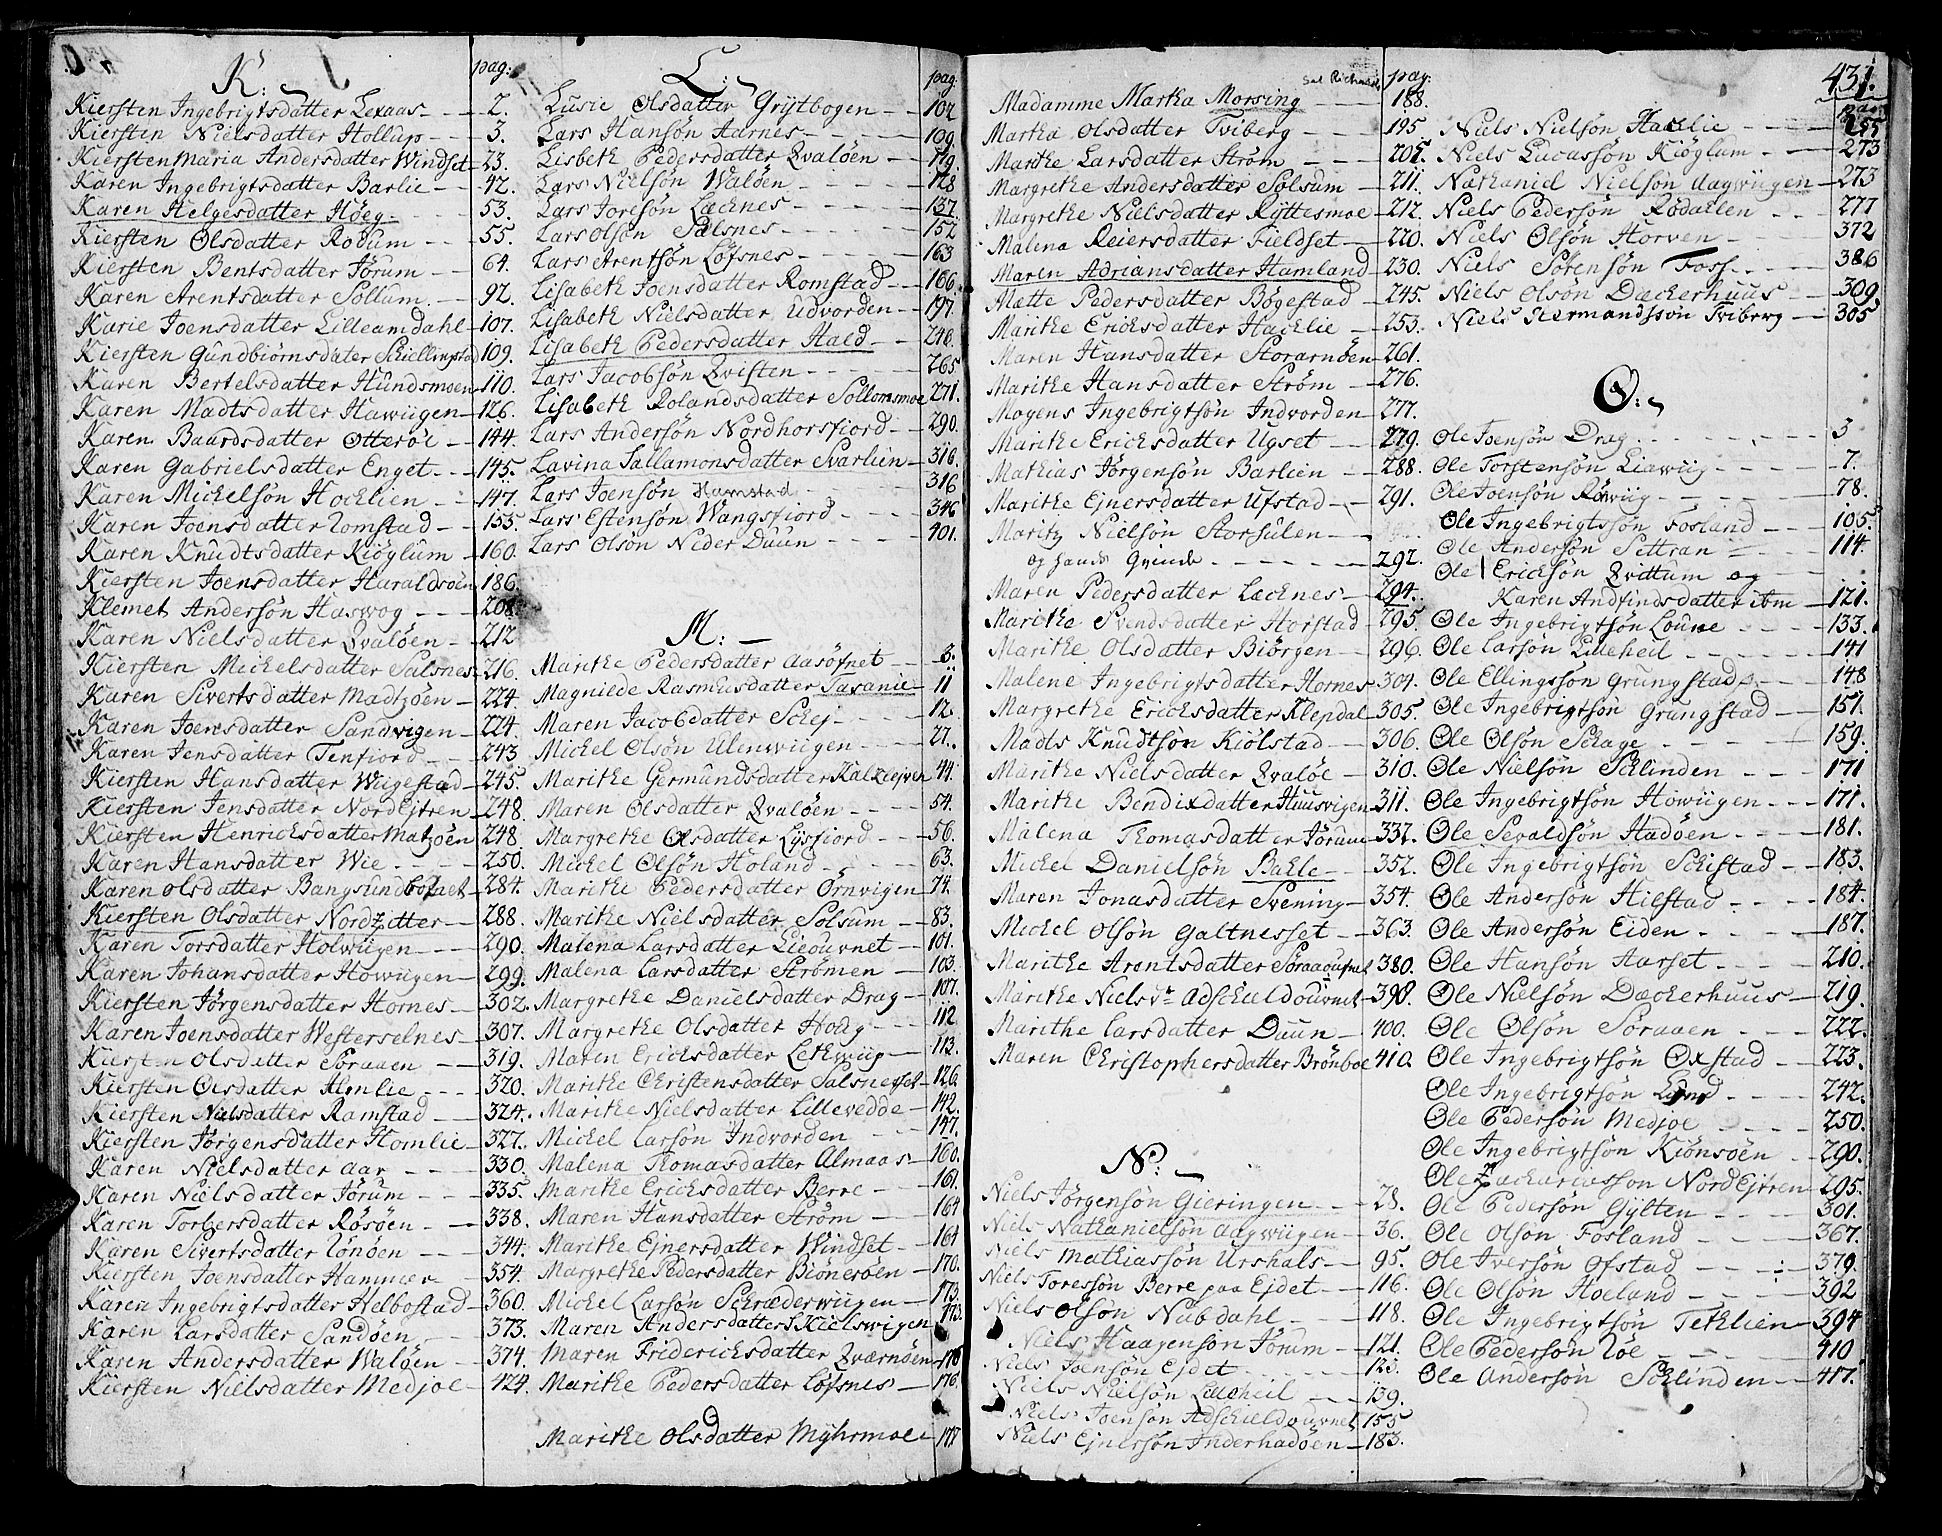 K:
pag:
Kiersten Ingebrigtsdatter Lexaas 2.
Kiersten Nielsdatter Hollup 3.
Kiersten Maria Andersdatter Windset 23.
Karen Ingebrigtsdatter Barlie 42.
Karen Helgesdatter Høeg 53.
Kiersten Olsdatter Rodum 55.
Kiersten Bentsdatter Jørum 64.
Karen Arentsdatter Sollum 92.
Karie Joensdatter Lilleamdahl 107.
Kiersten Gundbiørnsdater Schiellingstad 109.
Karen Bertelsdatter Hundsmoen 110.
Karen Madtsdatter Hawiigen 126.
Karen Baardsdatter Otterøe 144.
Karen Gabrielsdatter Enget 145.
Karen Mickelsøn Hocklien 147.
Karen Joensdatter Romstad 155
Karen Knudtsdatter Kiøglum 160.
Kiersten Joensdatter Haraldsøen 186.
Klemet Andersøn Haswog 208.
Karen Nielsdatter Qvaløen 212
Kiersten Mickelsdatter Salsnes 216.
Karen Sivertsdatter Madtzøen 224.
Karen Joensdatter Sandvigen 224.
Karen Jensdatter Tenfiord 243
Kiersten Hansdatter Wiigestad 245.
Kiersten Jensdatter NordEjtren 248.
Kiersten Henricksdatter Matzøen 248.
Karen Hansdatter Wie 250.
Karen olsdatter Bangsundbotnet 284.
Kiersten Olsdatter Nordzitter 288.
Karen Torsdatter Holwiigen 290.
Karen Johansdatter Howiigen 299.
Kiersten Jørgensdatter Hornes 302.
Karen Joensdatter Westerselnes 307.
Kiersten Olsdatter Soraaen 319.
Kiersten Olsdatter Homlie 320.
Kiersten Nielsdatter Ramstad 324.
Kiersten Jørgensdatter Homlie 327.
Karen Nielsdatter Aar 330.
Karen Nielsdatter Jørum 335.
Karen Torbersdatter Røsøen 338.
Karen Sivertsdatter Lønøen 344.
Kiersten Joensdatter Hammer 354.
Karen Ingebrigtsdatter Helbostad 360.
Karen Larsdatter Sandøen 373.
Karen Andersdatter Waløen 374.
Kiersten Nielsdatter Medjoe 424.
L:
pag
Lusie Olsdatter Grijtbogen 102
Lars Hansøn Aarnes 109.
Lisbeth Pedersdatter Qvaløen 119.
Lars Nielsøn Waløen 128
Lars Joresøn Lecknes 137.
Lars Olsøn Salsnes 152
Lars Arentsøn Løfsnes 163
Lisabeth Joensdatter Romstad 166.
Lisabeth Nielsdatter Udvorden 197.
Lisabeth Pedersdatter Hald 248.
Lars Jacobsøn Qvisten 265
Lisabeth Rolandsdatter Sollomsmoe 271.
Lars Andersøn Nordhorsfiord 290.
Lavina Sallamonsdatter Svarlien 316.
Lars Joensøn Hamstad 316
Lars Estensøn Wangsfiord 346
Lars Olsøn Neder Duun 401.
M:
Marithe Pedersdatter Aasøfnet 3.
Magnilde Rasmusdatter Tasanie 11
Maren Jacobdatter Schej 12.
Mickel Olsøn Ulenwiigen 27.
Marithe Germundsdatter Kalklejven 44.
Maren Olsdatter Qvaløen 54.
Margrethe Olsdatter Lysfiord 56.
Mickel Olsøn Høland 63.
Marithe Pedersdatter Ørnvigen 74.
Marithe Nielsdatter Solsum 83.
Malena Larsdatter Lieournet 101.
Malena Larsdatter Strømen 103.
Margrethe Danielsdatter Drag 107.
Margrethe Olsdatter Hodg 112
Maren Ericksdatter Lekwiig 113.
Marithe Christensdatter Salsneset 126.
Marithe Nielsdatter Lillevedde 142.
Mickel Larsøn Indvorden 147.
Malena Thomasdatter Almaas 160.
Marithe Ericksdatter Berre 161.
Maren Hansdatter Strøm 164
Marithe Ejnersdatter Windset 164
Margrethe Pedersdatter Biønesøen 170.
Mickel Larsøn Schræderwiigen 173.
Maren Andersdatter Kielswigen 173.
Maren Fridericksdatter Qværnøen 176
Marithe Pedersdatter Løfsnes 176.
Marithe Olsdatter Myhrmoe 177
Sal Richard
pag:
Madamme Martha Morsing 188.
Martha Olsdatter Tviberg 195.
Marithe Larsdatter Strøm 205.
Margrethe Andersdatter Solsum 211.
Margrethe Nielsdatter Ryttesmoe 212.
Malena Reiersdatter Fieldset 220.
Maren Adriansdatter Hamland 230.
Mette Pedersdatter Bøgestad 245.
Marithe Ericksdatter Hacklie 253.
Maren Hansdatter Storarnøen 261.
Marithe Hansdatter Strøm 276.
Mogens Ingebrigtsøn Indvorden 277.
Marithe Ericksdatter Ugset 279.
Mathias Jørgensøn Barlien 288.
Marithe Ejnersdatter Ufstad 291.
Maritz Nielsøn Storsulen
og hands Qvinde 292.
Maren Pedersdatter Lecknes 294.
Marithe Svendsdatter Horstad 295
Marithe Olsdatter Biørgen 296.
Malene Ingebrigtsdatter Hornes 304.
Margrethe Ericksdatter Klepdal 305.
Madts Knudtsøn Kiølstad 306.
Marithe Nielsdatter Qvaløe 310.
Marithe Bendixdatter Huusvigen 311.
Malena Thomasdatter Jørum 332.
Mickel Danielsøn Bakle 352.
Maren Jonasdatter Svening 354.
Mickel Olsøn Galtnesset 363.
Marithe Arentsdatter Søraaourfnet 380.
Marithe Nielsdr. Adschieldournet 398.
Marithe Larsdatter Duun 400.
Maren Christophersdatter Brønboe 410.
N:
Niels Jørgensøn Gieringen 28.
Niels Nathanielsøn Aagwiigen 36.
Niels Mathiassøn Urshals 95.
Niels Toressøn Berre paa Ejdet 116.
Niels Olsøn Nubdahl 118.
Niels Haagensøn Jørum 121.
Niels Joensøn Ejdet 123.
Niels Nielsøn Lilleheil 139.
Niels Joensøn Adschieldourvnet 155
Niels Ejnersøn Inderhadøen 183.
431.
pag
Niels Nielsøn Hacklie 255
Niels Lucassøn Kiøglum 273
Nathaniel Nielsøn Aagwiigen 273
Niels Pedersøn Rødaelen 277
Niels Olsøn Horven 372
Niels Sørensøn Foss 386
Niels Olsøn Dæckerhuus 309
Niels Hermandssøn Tviberg 305
O:
Ole Joensøn Drag 3
Ole Torstensøn Liawiig 7.
Ole Joensøn Røwiig 78.
Ole Ingebrigtsøn Fosland 105.
Ole Andersøn Settran 114.
Ole Ericksøn Qvittum og
Karen Andfindsdatter ibm 121.
Ole Ingebrigtsøn Loune 133.
Ole Larsøn Lilleheil 141
Ole Ellingssøn Grungstad 148
Ole Ingebrigtsøn Grungstad 151.
Ole Olsøn Schage 159.
Ole Nielsøn Schlinden 171
Ole Ingebrigtsøn Howiigen 171.
Ole Sevaldsøn Hadøen 181.
Ole Ingebrigtsøn Schistad 183.
Ole Andersøn Hielstad 184.
Ole Andersøn Eiden 187.
Ole Hansøn Aarset 210.
Ole Nielsøn Dæckerhuus 219.
Ole Olsøn Soraaen 222.
Ole Ingebrigtsøn Oxstad 223.
Ole Ingebrigtsøn Lund 242.
Ole Pedersøn Medjoe 250.
Ole Ingebrigtsøn Kiønsøen 290.
Ole Zachariassøn NordEjtren 295.
Ole Pedersøn Gylten 301.
Ole Olsøn Fosland 367.
Ole Iversøn Ofstad 379.
Ole Olsøn Hoeland 392
Ole Ingebrigtsøn Teklien 394
Ole Pedersøn Løe 410
Ole Andersøn Schlinden 417.